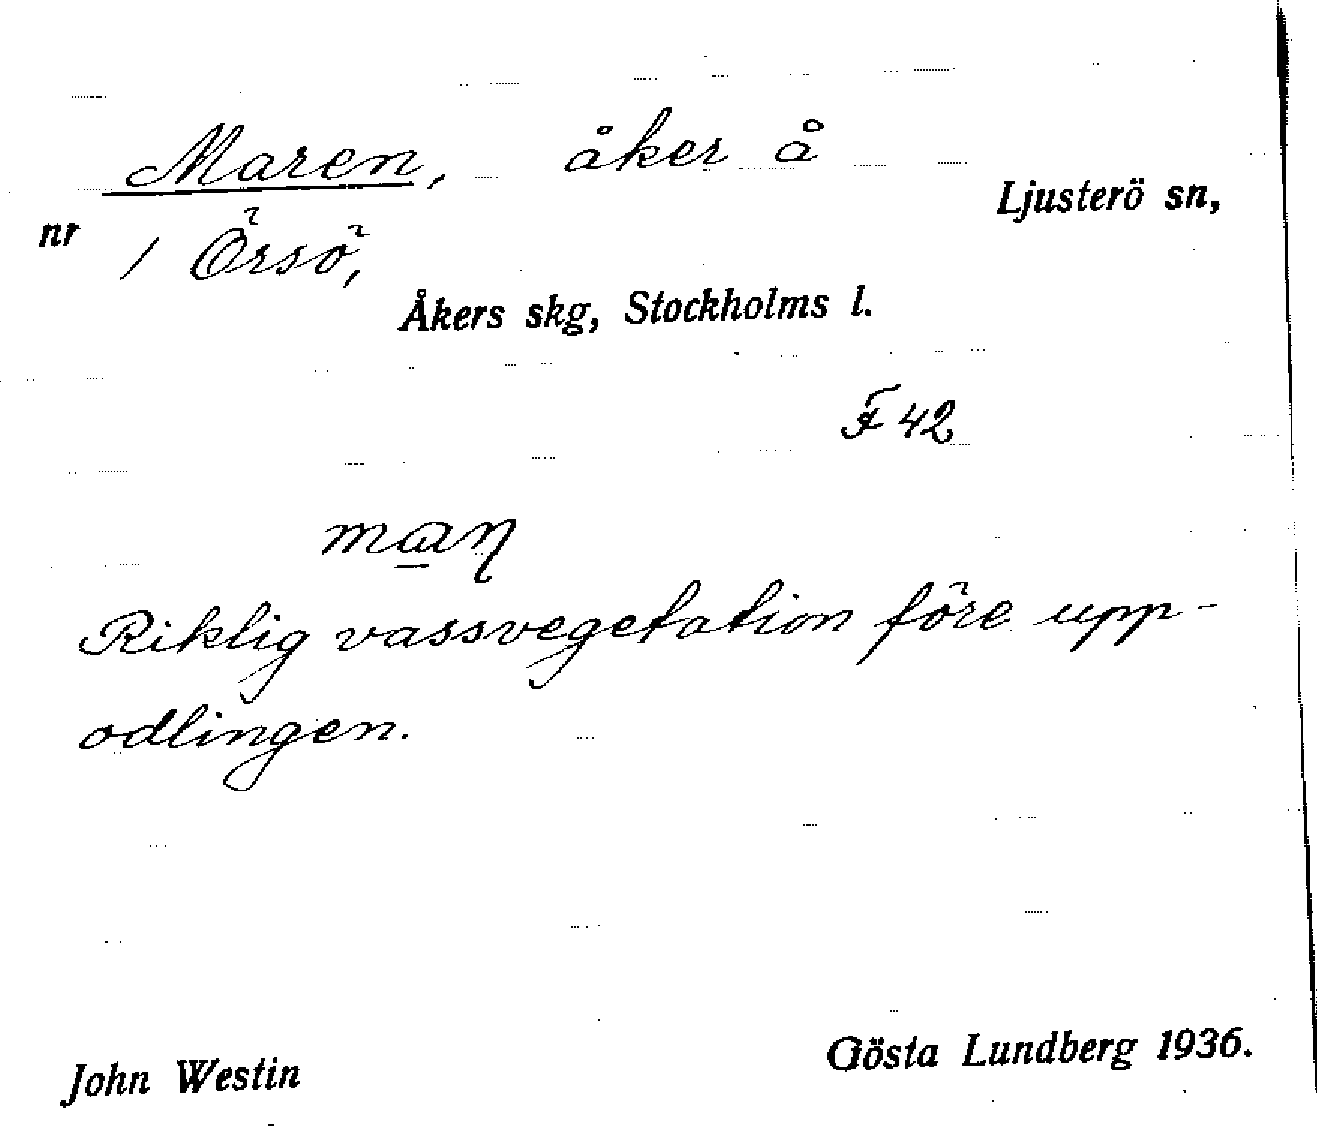 Maren, åker å
Ljusterö sn,
nr 1 Örsö,
Åkers skg, Stockholms l.
F 42
Riklig vassvegetation före upp-
odlingen.
John Westin
Gösta Lundberg 1936.